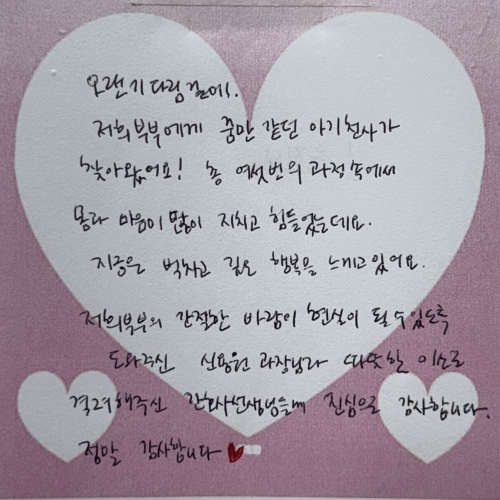 오랜기다림끝에.
저희부부에게 꿈만 같던 아기천사가
찾아왔어요! 총 여섯번의 과정속에서
몸과 마음이 많이 지치고 힘들었는데요.
지금은 벅차고 깊은 행복을 느끼고있어요.
저희부부의 간절한 바람이 현실이 될 수 있도록
도와주신 신용원 과장님과 따뜻한 미소로
격려해주신 간호사선생님들께 진심으로 감사합니다.
정말 감사합니다